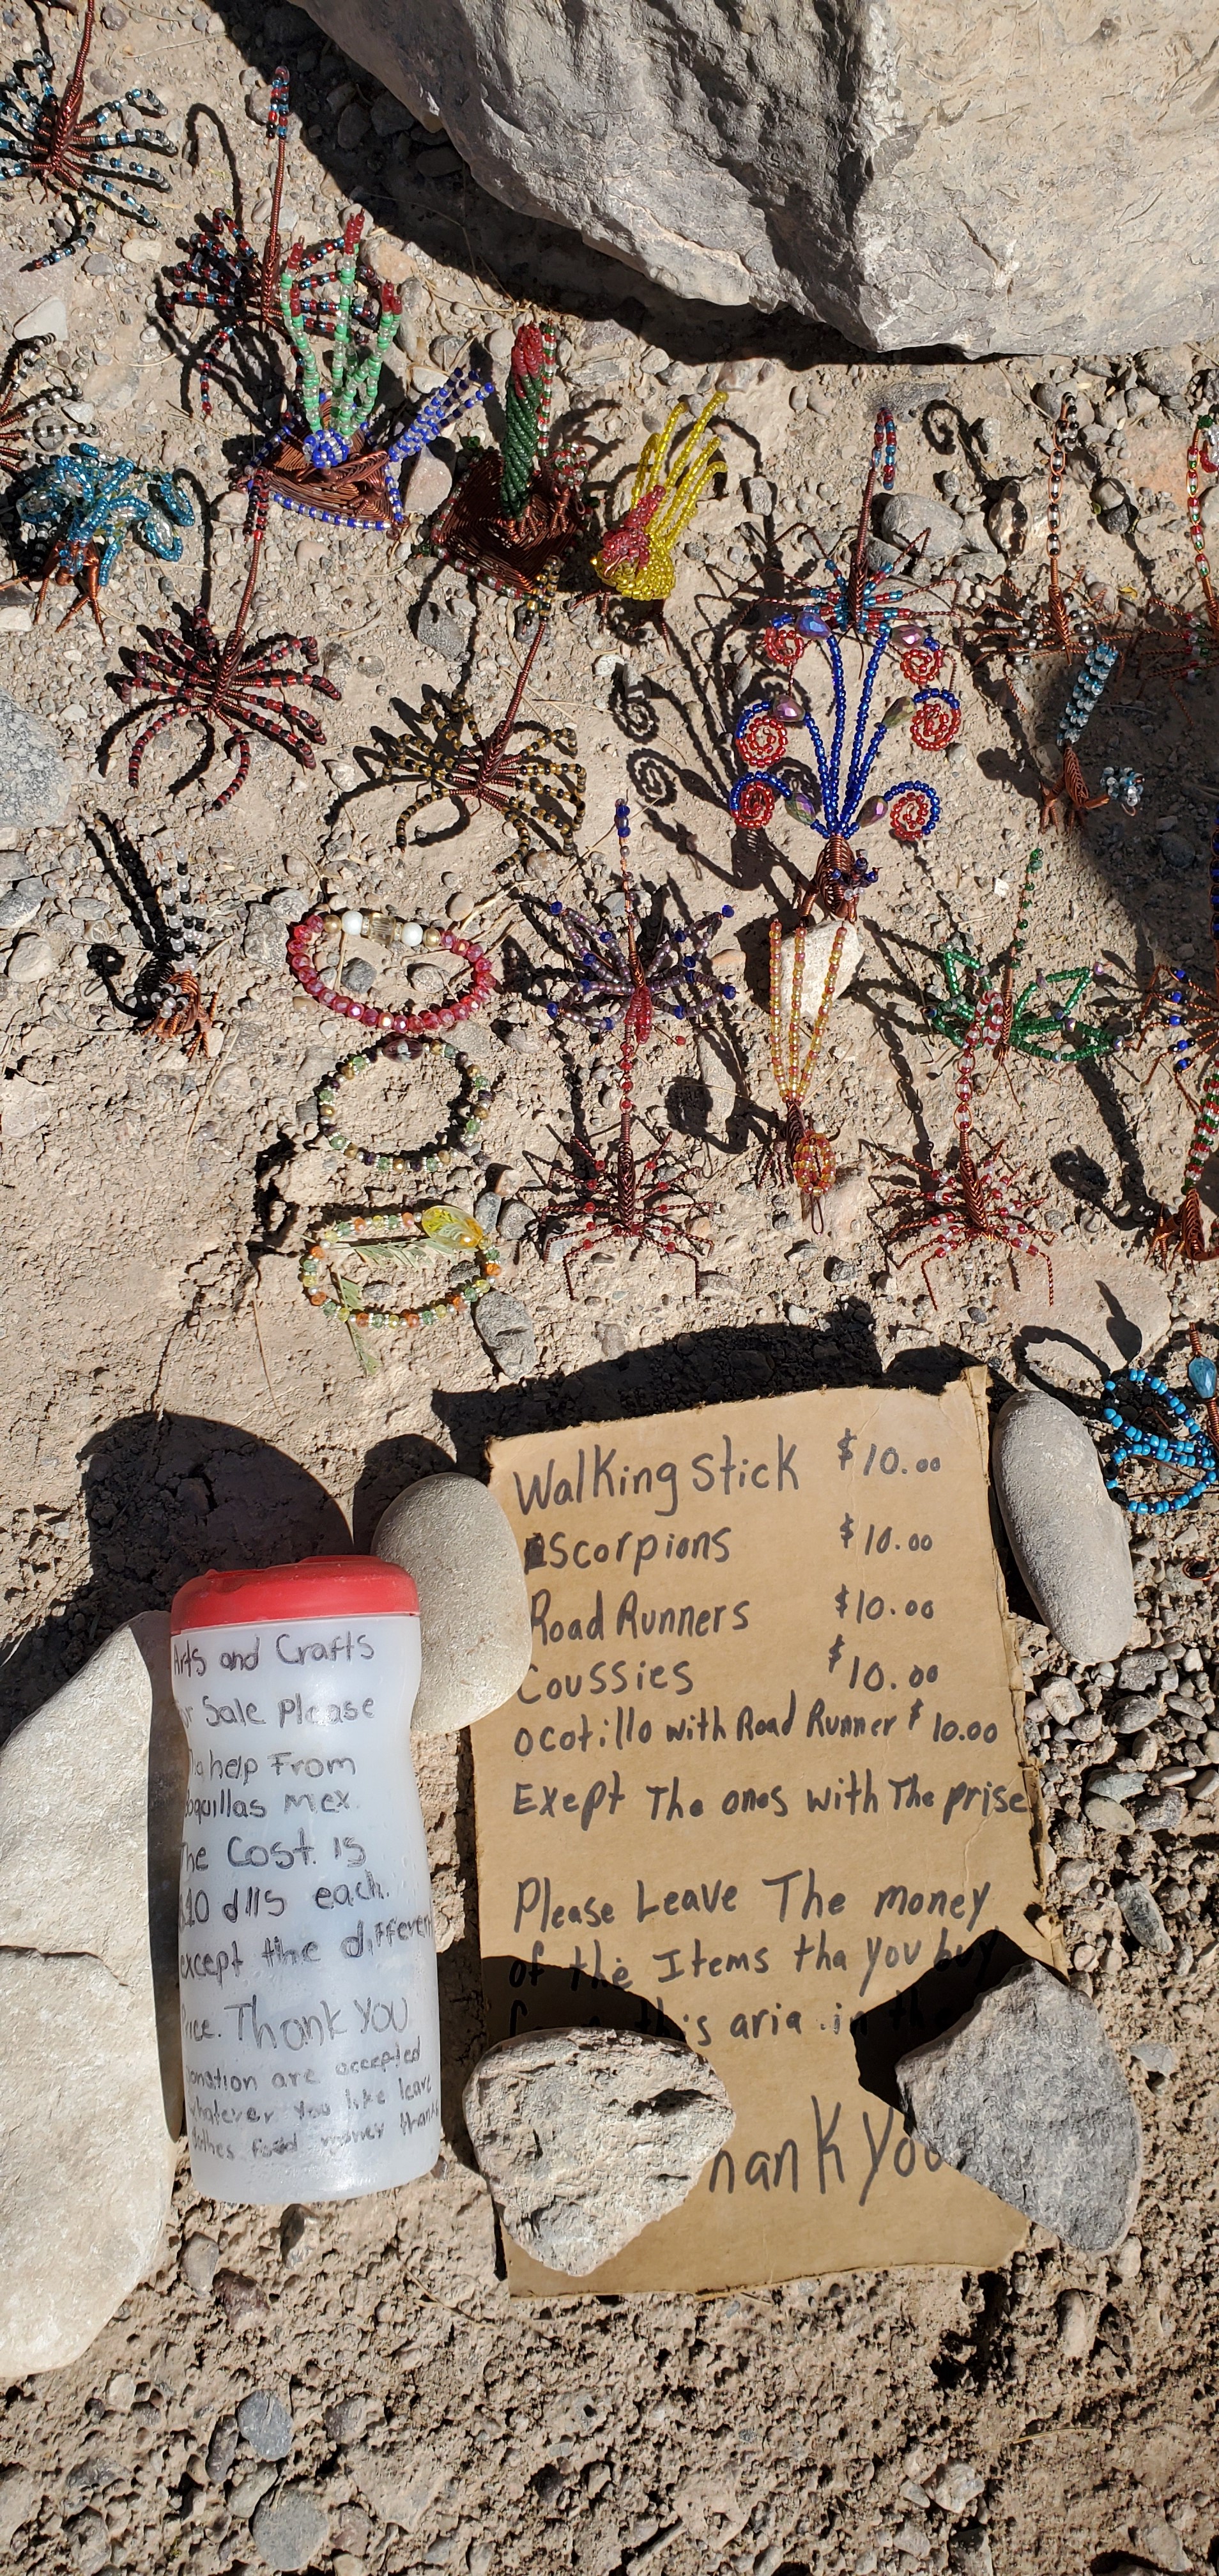 Walking Stick $10.00
Scorpions $10.00
Road Runners $10.00
Coussies $10.00
ocotillo with Road Runner $10.00
Exept The ones with The prise
Please Leave The money
of the Items tha you buy
this aria in the
hank You
Arts and Crafts
r Sale please
help From
oquillas mex.
The Cost is
$10 dlls each.
except the different
rice. Thank You
onation are accepted
whatever you like leave
clothes food money thank